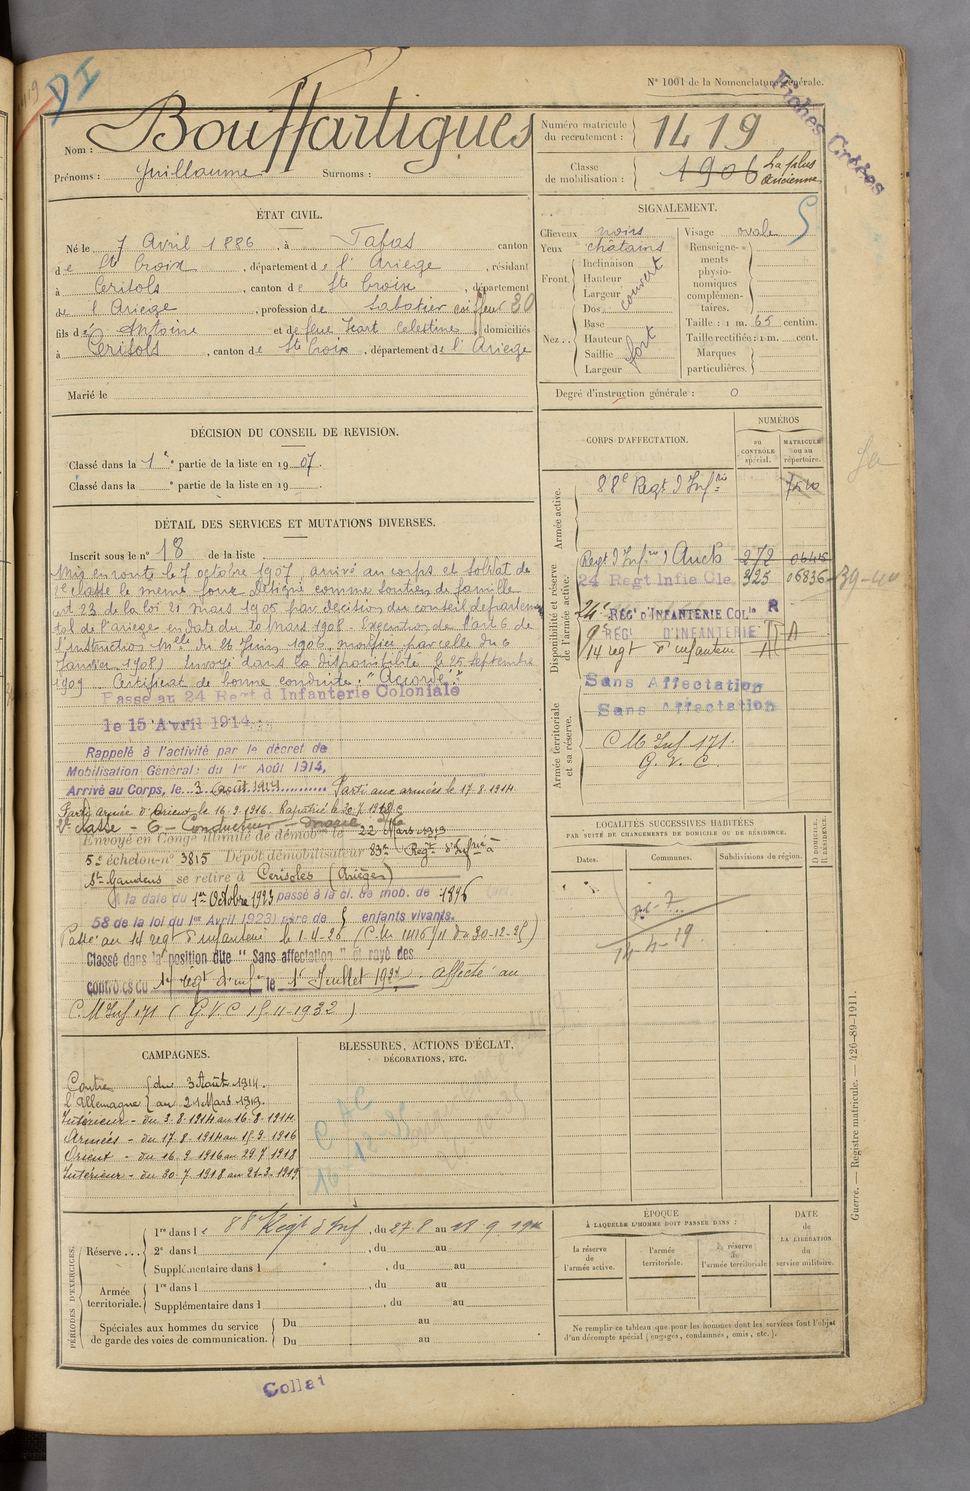 N° 1001 de la Nomenclature générale.
Fiches Créées
Nom : Bouffartigues
Prénoms : Guillaume Surnoms :
Numéro matricule du recrutement : 1419
Classe de mobilisation : 1906 La plus ancienne
ÉTAT CIVIL.
Né le 7 Avril 1886, à Fabas canton
de Ste Croix, département de l'Ariège, résidant
à Cerisols, canton de Ste Croix, département
de l'Ariège, profession de Sabotier coiffeur 80
fils de Antoine et de feue Icart Celestine, domiciliés
à Cerisols, canton de Ste Croix, département de l'Ariège
Marié le
SIGNALEMENT.
Cheveux noirs
Yeux chatains
Front.
Inclinaison
Hauteur
Largeur
couvert
Nez..
Dos
Base
Hauteur
Saillie
Largeur
fort
Visage ovale
Renseignements physionomiques complémentaires.
Taille : 1 m. 65 centim.
Taille rectifiée : 1 m. cent.
Marques particulières.
Degré d'instruction générale : 0
DÉCISION DU CONSEIL DE REVISION.
Classé dans la 1e partie de la liste en 1907.
Classé dans la e partie de la liste en 19 .
DÉTAIL DES SERVICES ET MUTATIONS DIVERSES.
Inscrit sous le n° 18 de la liste
Mis en route le 7 octobre 1907, arrivé au corps et soldat de
2e classe le même jour. Désigné comme soutien de famille
art 23 de la loi 21 mars 1905 par décision du conseil départemen
tal de l'ariege en date du 10 mars 1908 - Exécution de l'art 6 de
l'instruction Mlle du 26 Juin 1906, modifiée par celle du 6
Janvier 1908) Envoyé dans la disponibilité le 25 septembre
1909 Certificat de bonne conduite : "Accordé".
Passé au 24 Regt d Infanterie Coloniale
le 15 Avril 1914
Rappelé à l'activité par le décret de
Mobilisation Générale du 1er Août 1914,
Arrivé au Corps, le 3 août 1914 Parti aux armées le 17.8.1914
Parti armée d'Orient le 16.9.1916. Rapatrié le 30.7.1918
2e classe - 6 - Conducteur
Envoyé en Congé illimité de démobon le 22 Mars 1919
5e échelon n° 3815 Dépôt démobilisateur 83e Regt d'Infrie à
St Gaudens se retire à Cerisoles (Ariège)
A la date du 1er Octobre 1923 passé à la cl. de mob. de 1896 (art.
58 de la loi du 1er Avril 1923) père de 5 enfants vivants.
Passé au 14 regt d'infanterie le 1-4-26 (C.M. 11416/11 du 30-12-25)
Classé dans la position dite "Sans affectation" et rayé des
contrôles du 14 régt d'infie le 1er Juillet 19 . affecté au
C.M Inf 171 (G.V.C 15-11-1932)
CORPS D'AFFECTATION.
NUMÉROS
AU CONTRÔLE spécial.
MATRICULE ou au répertoire.
Armée active.
88e Regt d'Infrie
Disponibilité et réserve de l'armée active.
Regt d'Infie d'Auch 272
24 Regt Infie Cle 325 06836
24e REGt d'INFANTERIE COLle R
9e REGt D'INFANTERIE
14 regt d'infanterie
Armée territoriale et sa réserve.
Sans Affectation
Sans Affectation
C M Inf 171.
G.V.C.
LOCALITÉS SUCCESSIVES HABITÉES
PAR SUITE DE CHANGEMENTS DE DOMICILE OU DE RÉSIDENCE.
Dates.
Communes.
Subdivisions de région.
D DOMICILE. R RÉSIDENCE.
14-4-19.
CAMPAGNES.
Contre l'Allemagne
du 3 Août 1914.
au 21 Mars 1919.
Intérieur - du 3.8.1914 au 16.8.1914
Armées - du 17.8.1914 au 15.9.1916
Orient - du 16.9.1916 au 29.7.1918
Intérieur - du 30.7.1918 au 21.3.1919
BLESSURES, ACTIONS D'ÉCLAT,
DÉCORATIONS, ETC.
PÉRIODES D'EXERCICES.
Réserve...
1re dans le 88e Regt d'Inf, du 27.8 au 18 9 19
2e dans l , du au
Supplémentaire dans l , du au
Armée territoriale.
1re dans l , du au
Supplémentaire dans l , du au
Spéciales aux hommes du service de garde des voies de communication.
Du au
Du au
ÉPOQUE
À LAQUELLE L'HOMME DOIT PASSER DANS :
la réserve de l'armée active.
l'armée territoriale.
la réserve de l'armée territoriale
DATE de LA LIBÉRATION du service militaire.
Ne remplir ce tableau que pour les hommes dont les services font l'objet
d'un décompte spécial (engagés, condamnés, omis, etc.).
Guerre. — Registre matricule. — 426-89-1911.